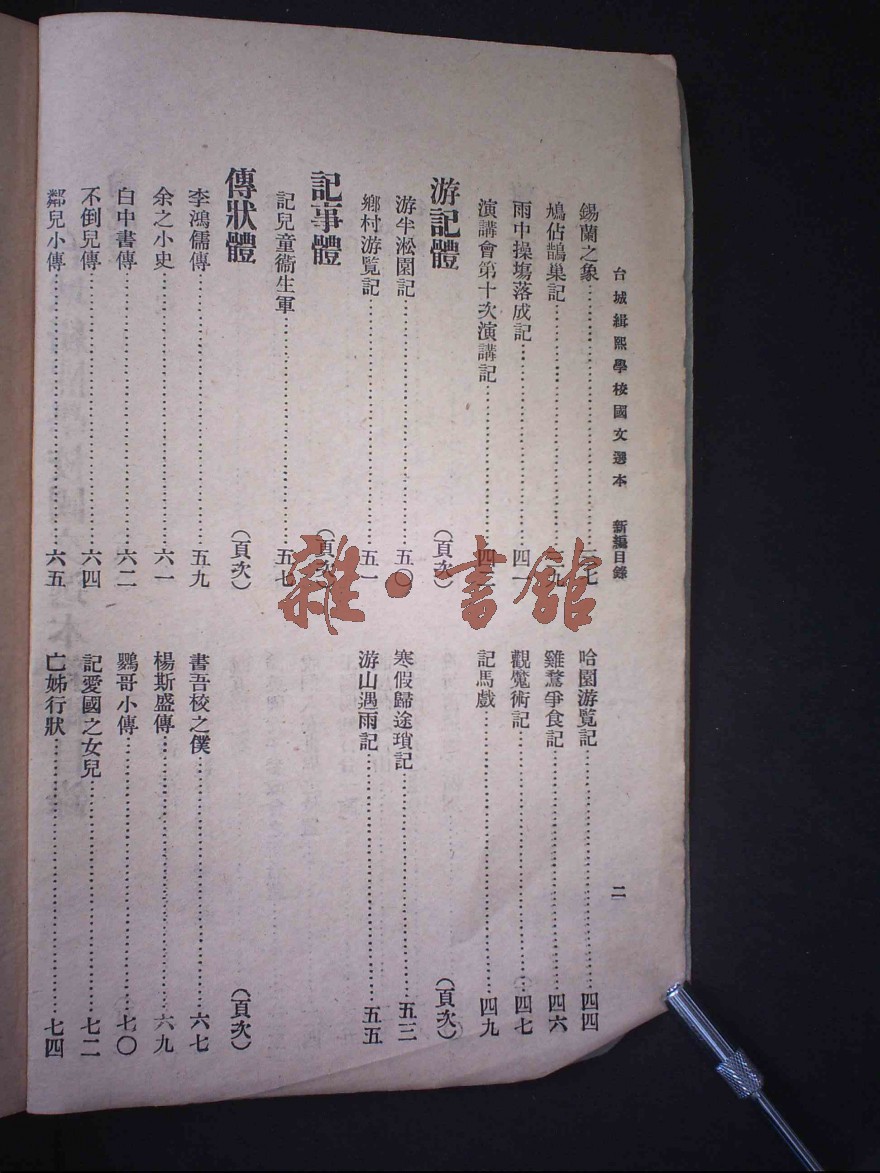 台城緝熙學校國文選本 新編目錄 二
錫蘭之象 三七
鳩佔鵲巢記 三九
雨中操塲落成記 四一
演講會第十次演講記 四三
哈園游覧記 四四
雞鶩爭食記 四六
觀魔術記 四七
記馬戲 四九
游記體 (頁次) (頁次)
游半淞園記 五〇
鄉村游覧記 五一
寒假歸途瑣記 五三
游山遇雨記 五五
記事體 (頁次)
記兒童衞生軍 五七
傳狀體 (頁次) (頁次)
李鴻儒傳 五九
余之小史 六一
白中書傳 六二
不倒兒傳 六四
鄰兒小傳 六五
書吾校之僕 六七
楊斯盛傳 六九
鸚哥小傳 七〇
記愛國之女兒 七二
亡姊行狀 七四
雜·書館